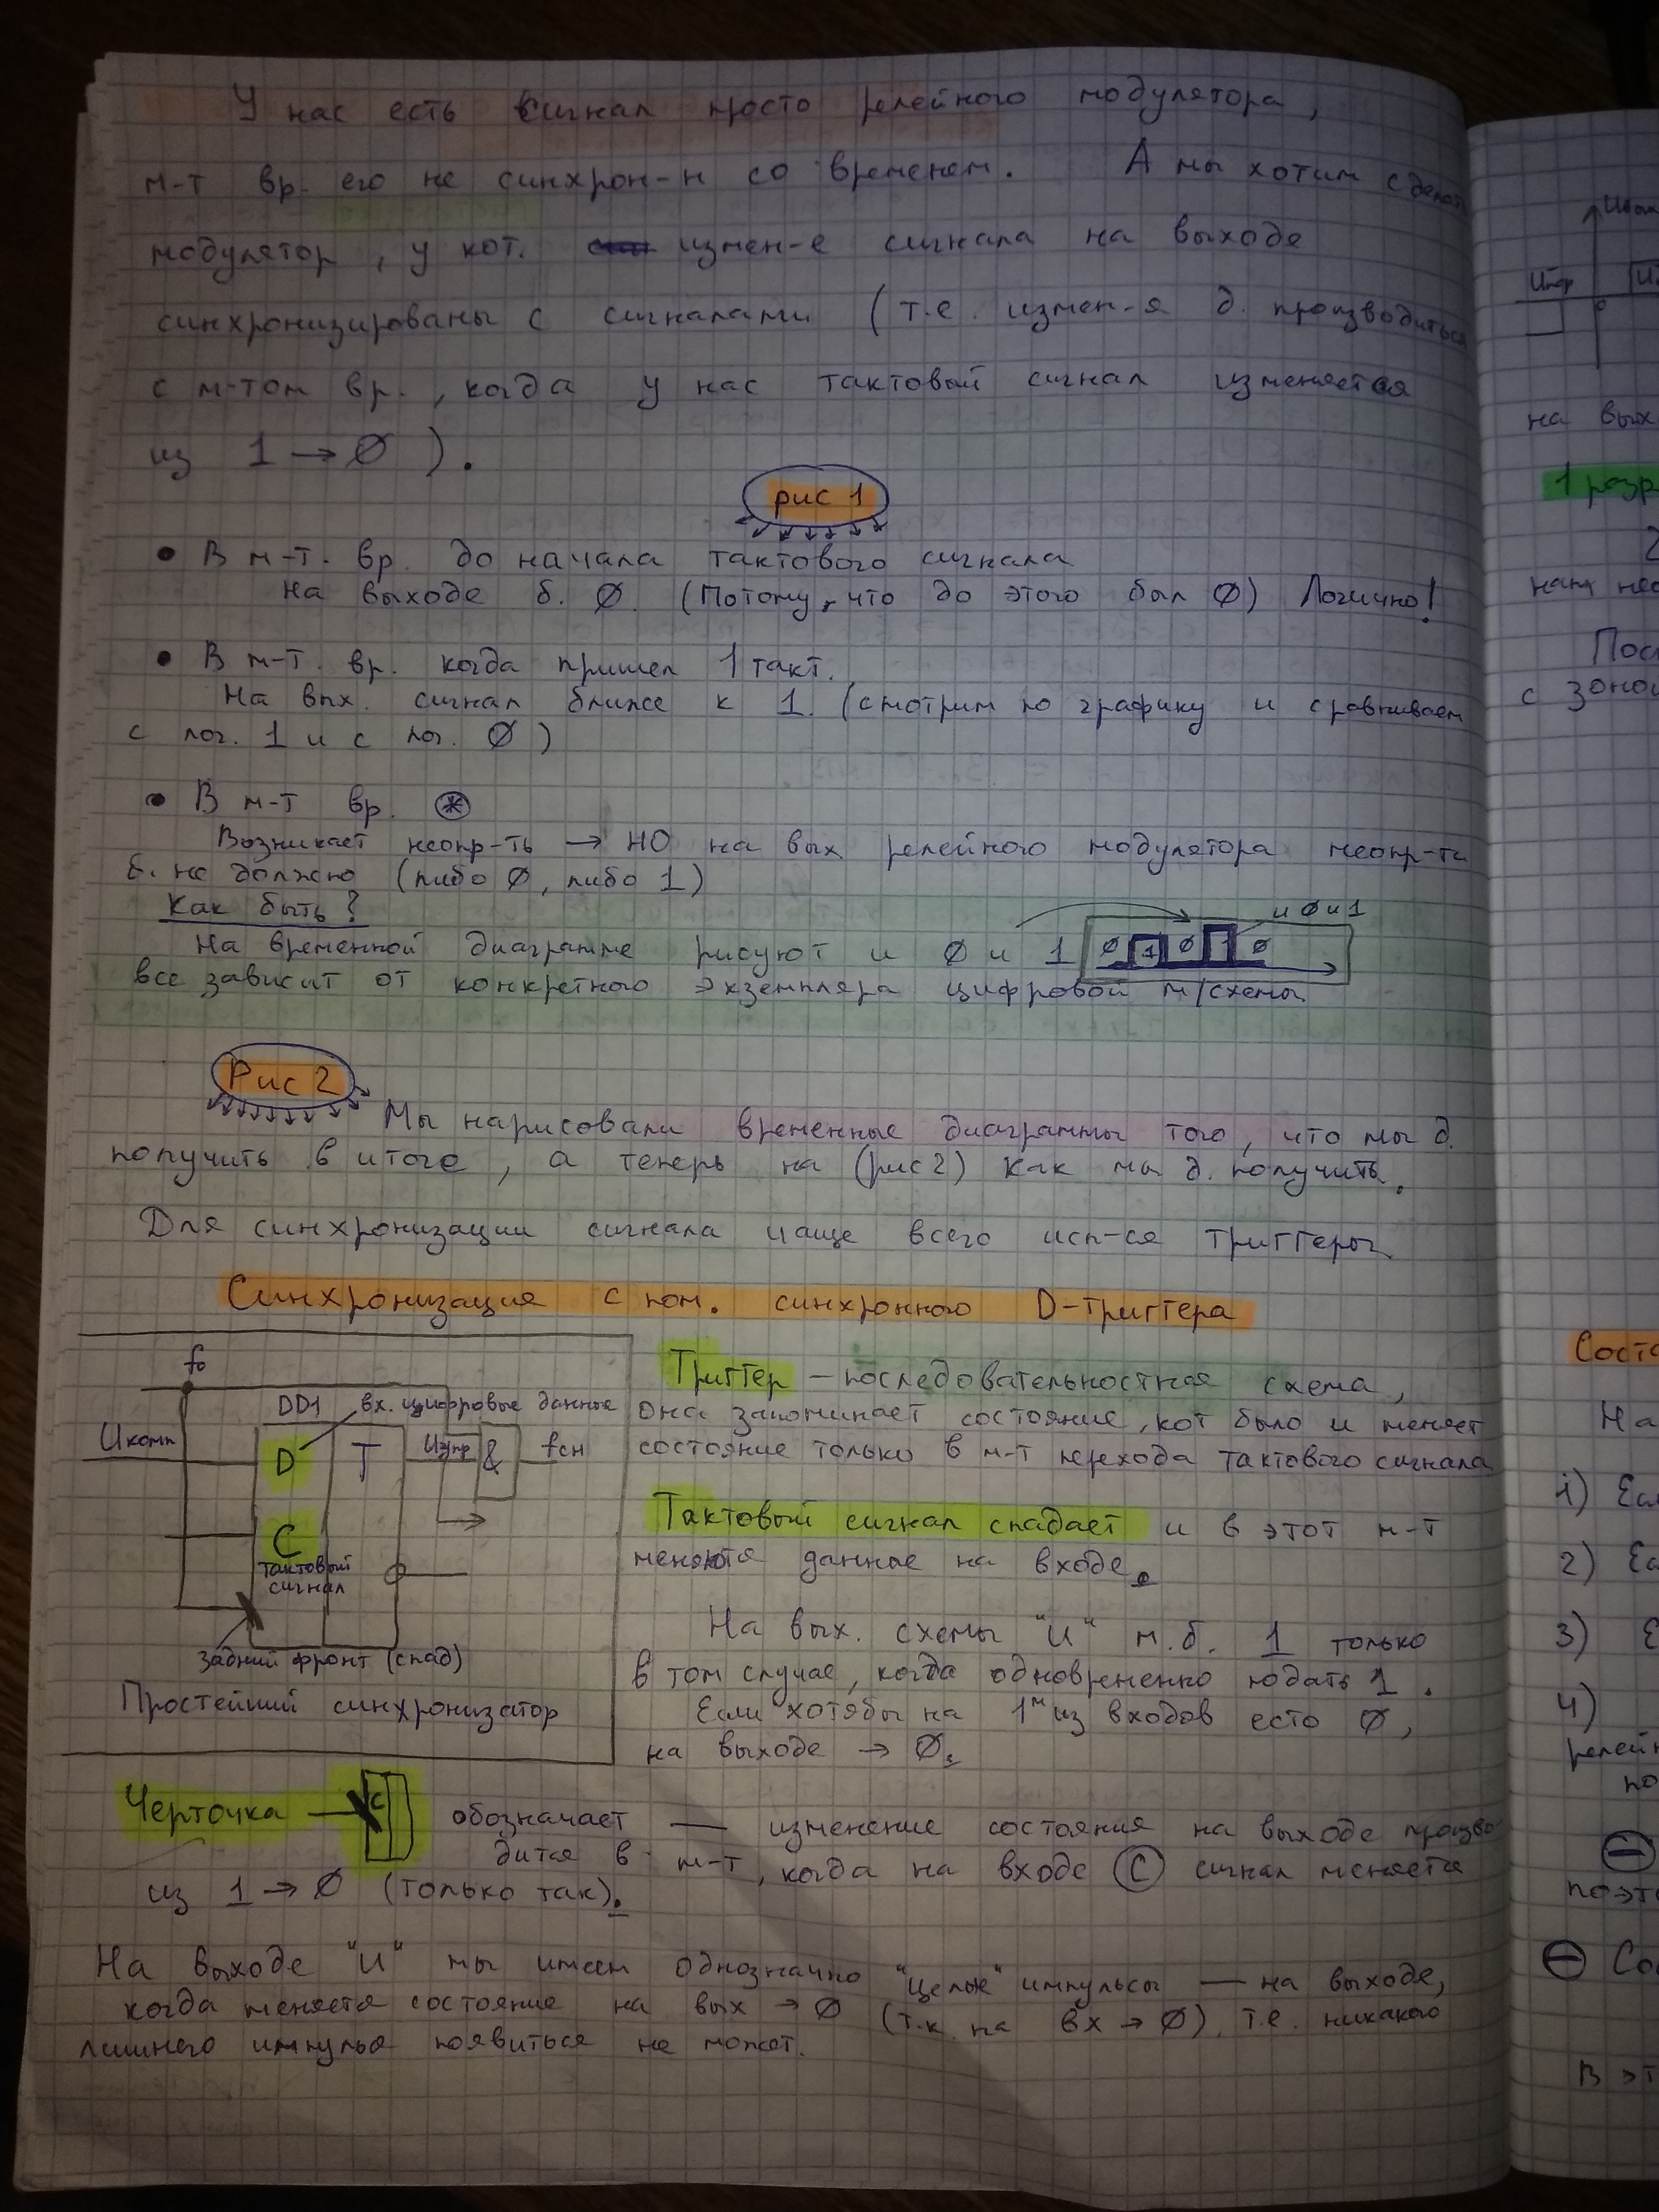 У нас есть сигнал просто релейного модулятора,
м-т вр. его не синхрон-н со временем. А мы хотим сделать
модулятор, у кот. измен-е сигнала на выходе
синхронизированы с сигналами (т.е. измен-я д. производиться
с м-том вр., когда у нас тактовый сигнал изменяется
из 1 → 0 ).
рис 1
• В м-т. вр. до начала тактового сигнала
на выходе б. 0. (Потому, что до этого был 0) Логично!
• В м-т. вр. когда пришел 1 такт.
На вых. сигнал ближе к 1. (смотрим по графику и сравниваем
с лог. 1 и с лог. 0)
• В м-т вр. *
Возникает неопр-ть → НО на вых релейного модулятора неопр-ти
б. не должно (либо 0, либо 1)
Как быть?
и 0 и 1
На временной диаграмме рисуют и 0 и 1 0 1 0 1 0
все зависит от конкретного экземпляра цифровой м/схемы
Рис 2
Мы нарисовали временные диаграммы того, что мы д.
получить в итоге, а теперь на (рис 2) как мы д. получить.
Для синхронизации сигнала чаще всего исп-ся триггеры
Синхронизация с пом. синхронного D-триггера
f₀
DD1 вх. цифровые данные
Uкомп D T Uупр & fсн
C
тактовый
сигнал
задний фронт (спад)
Простейший синхронизатор
Триггер – последовательностная схема,
она запоминает состояние, кот было и меняет
состояние только в м-т перехода тактового сигнала
Тактовый сигнал спадает и в этот м-т
меняются данные на входе.
На вых. схемы "И" м.б. 1 только
в том случае, когда одновременно подать 1.
Если хотябы на 1м из входов есть 0,
на выходе → 0.
Черточка C обозначает — изменение состояния на выходе произво
дится в м-т, когда на входе C сигнал меняется
из 1 → 0 (только так).
На выходе "И" мы имеем однозначно "целые" импульсы — на выходе,
когда меняется состояние на вых → 0 (т.к. на вх → 0), т.е. никакого
лишнего импульса появиться не может.
Uпор
0
на вых
1 разр
Пос
с зоной
Сост
На
1) Есл
2) Ес
3) Е
4)
релейн
по
поэт
⊖ Со
В эт